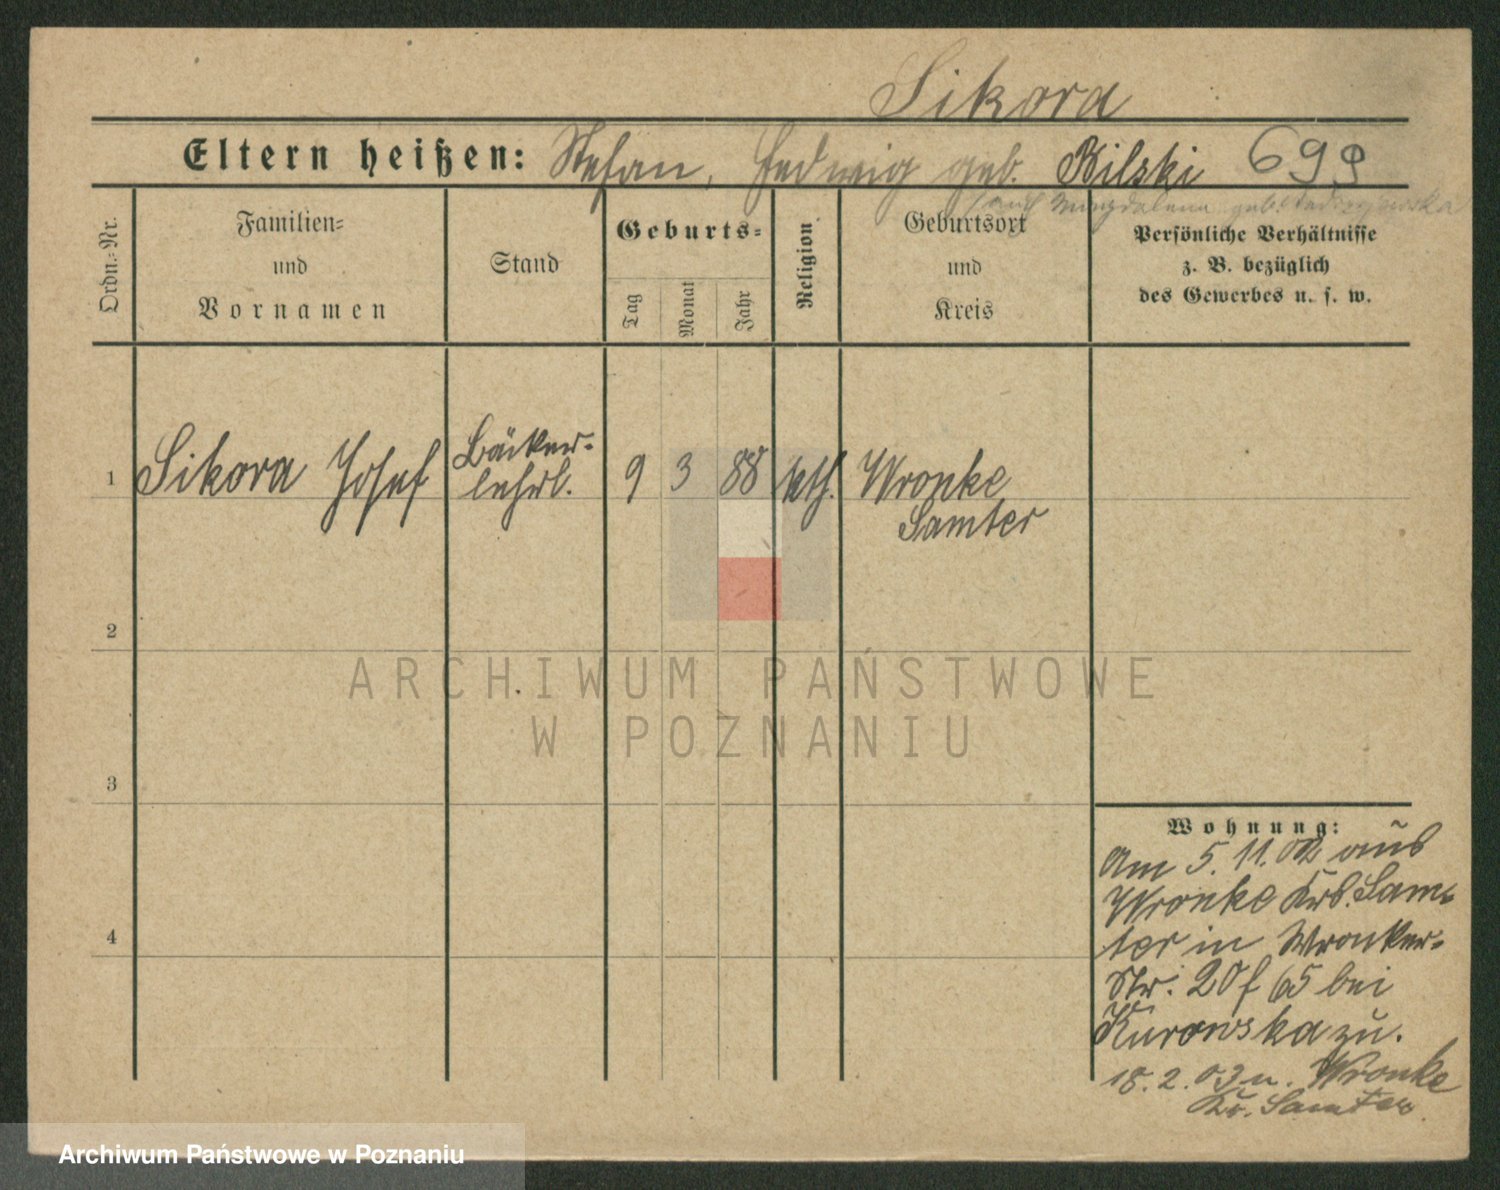 Sikora
Eltern heißen: Stefan, Hedwig geb. Bilski 699
auch Magdalena geb.
Ordn.-Nr.
Familien-
und
Vornamen
Stand
Geburts-
Tag
Monat
Jahr
Religion
Geburtsort
und
Kreis
Persönliche Verhältnisse
z. B. bezüglich
des Gewerbes u. s. w.
1 Sikora Josef Bäcker-
lehrl. 9 3 88 kth. Wronke
Samter
2
3
4
Wohnung:
Am 5. 11. 02 aus
Wronke Krs. Sam-
ter in Wronker-
Str. 20 f 65 bei
Kurowska zu.
18. 2. 03 n. Wronke
Kr. Samter
ARCHIWUM PAŃSTWOWE
W POZNANIU
Archiwum Państwowe w Poznaniu